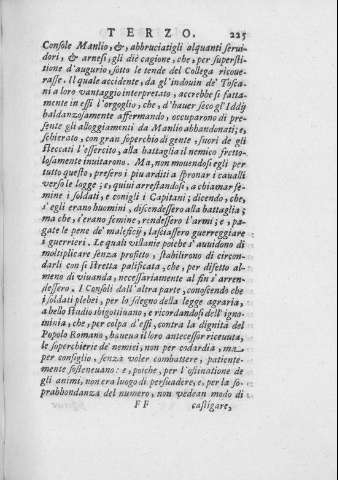 TERZO. 225
Conſole Manlio, &, abbruciatigli alquanti ſerui-
dori, & arneſi, gli diè cagione, che, per ſuperſti-
tione d'augurio, ſotto le tende del Collega ricoue-
raſſe. Il quale accidente, da gl'indouin de' Toſca-
ni a loro vantaggio interpretato, accrebbe sì fatta-
mente in eſſi l'orgoglio, che, d'hauer ſeco gl'Iddij
baldanzoſamente affermando, occuparono di pre-
ſente gli alloggiamenti da Manlio abbandonati; e,
ſchierato, con gran ſoperchio di gente, fuori de gli
ſteccati l'eſſercito, alla battaglia il nemico fretto-
loſamente inuitarono. Ma, non mouendoſi egli per
tutto queſto, preſero i più arditi a ſpronar i caualli
verſo le logge; e, quiui arreſtandoſi, a chiamar fe-
mine i ſoldati, e conigli i Capitani; dicendo, che,
s'egli erano huomini, diſcendeſſero alla battaglia;
ma che, s'erano femine, rendeſſero l'armi; e, pa-
gate le pene de' maleficij, laſciaſſero guerreggiare
i guerrieri. Le quali villanie poiche s'auuidono di
moltiplicare senza profitto, ſtabilirono di circon-
darli con sì ſtretta palificata, che, per difetto al-
meno di viuanda, neceſſariamente al fin s'arren-
deſſero. I Conſoli dall'altra parte, conoſcendo che
i ſoldati plebei, per lo ſdegno della legge agraria,
a bello ſtudio sbigottiuano, e ricordandoſi dell'igno-
minia, che, per colpa d'eſſi, contra la dignità del
Popolo Romano, haueua il loro anteceſſor riceuuta,
le ſoperchierie de' nemici, non per codardia, ma
per conſiglio, ſenza voler combattere, patiente-
mente ſoſteneuano: e, poiche, per l'oſtinatione de
gli animi, non era luogo di perſuadere, e, per la ſo-
prabbondanza del numero, non vedean modo di
FF caſtigare,